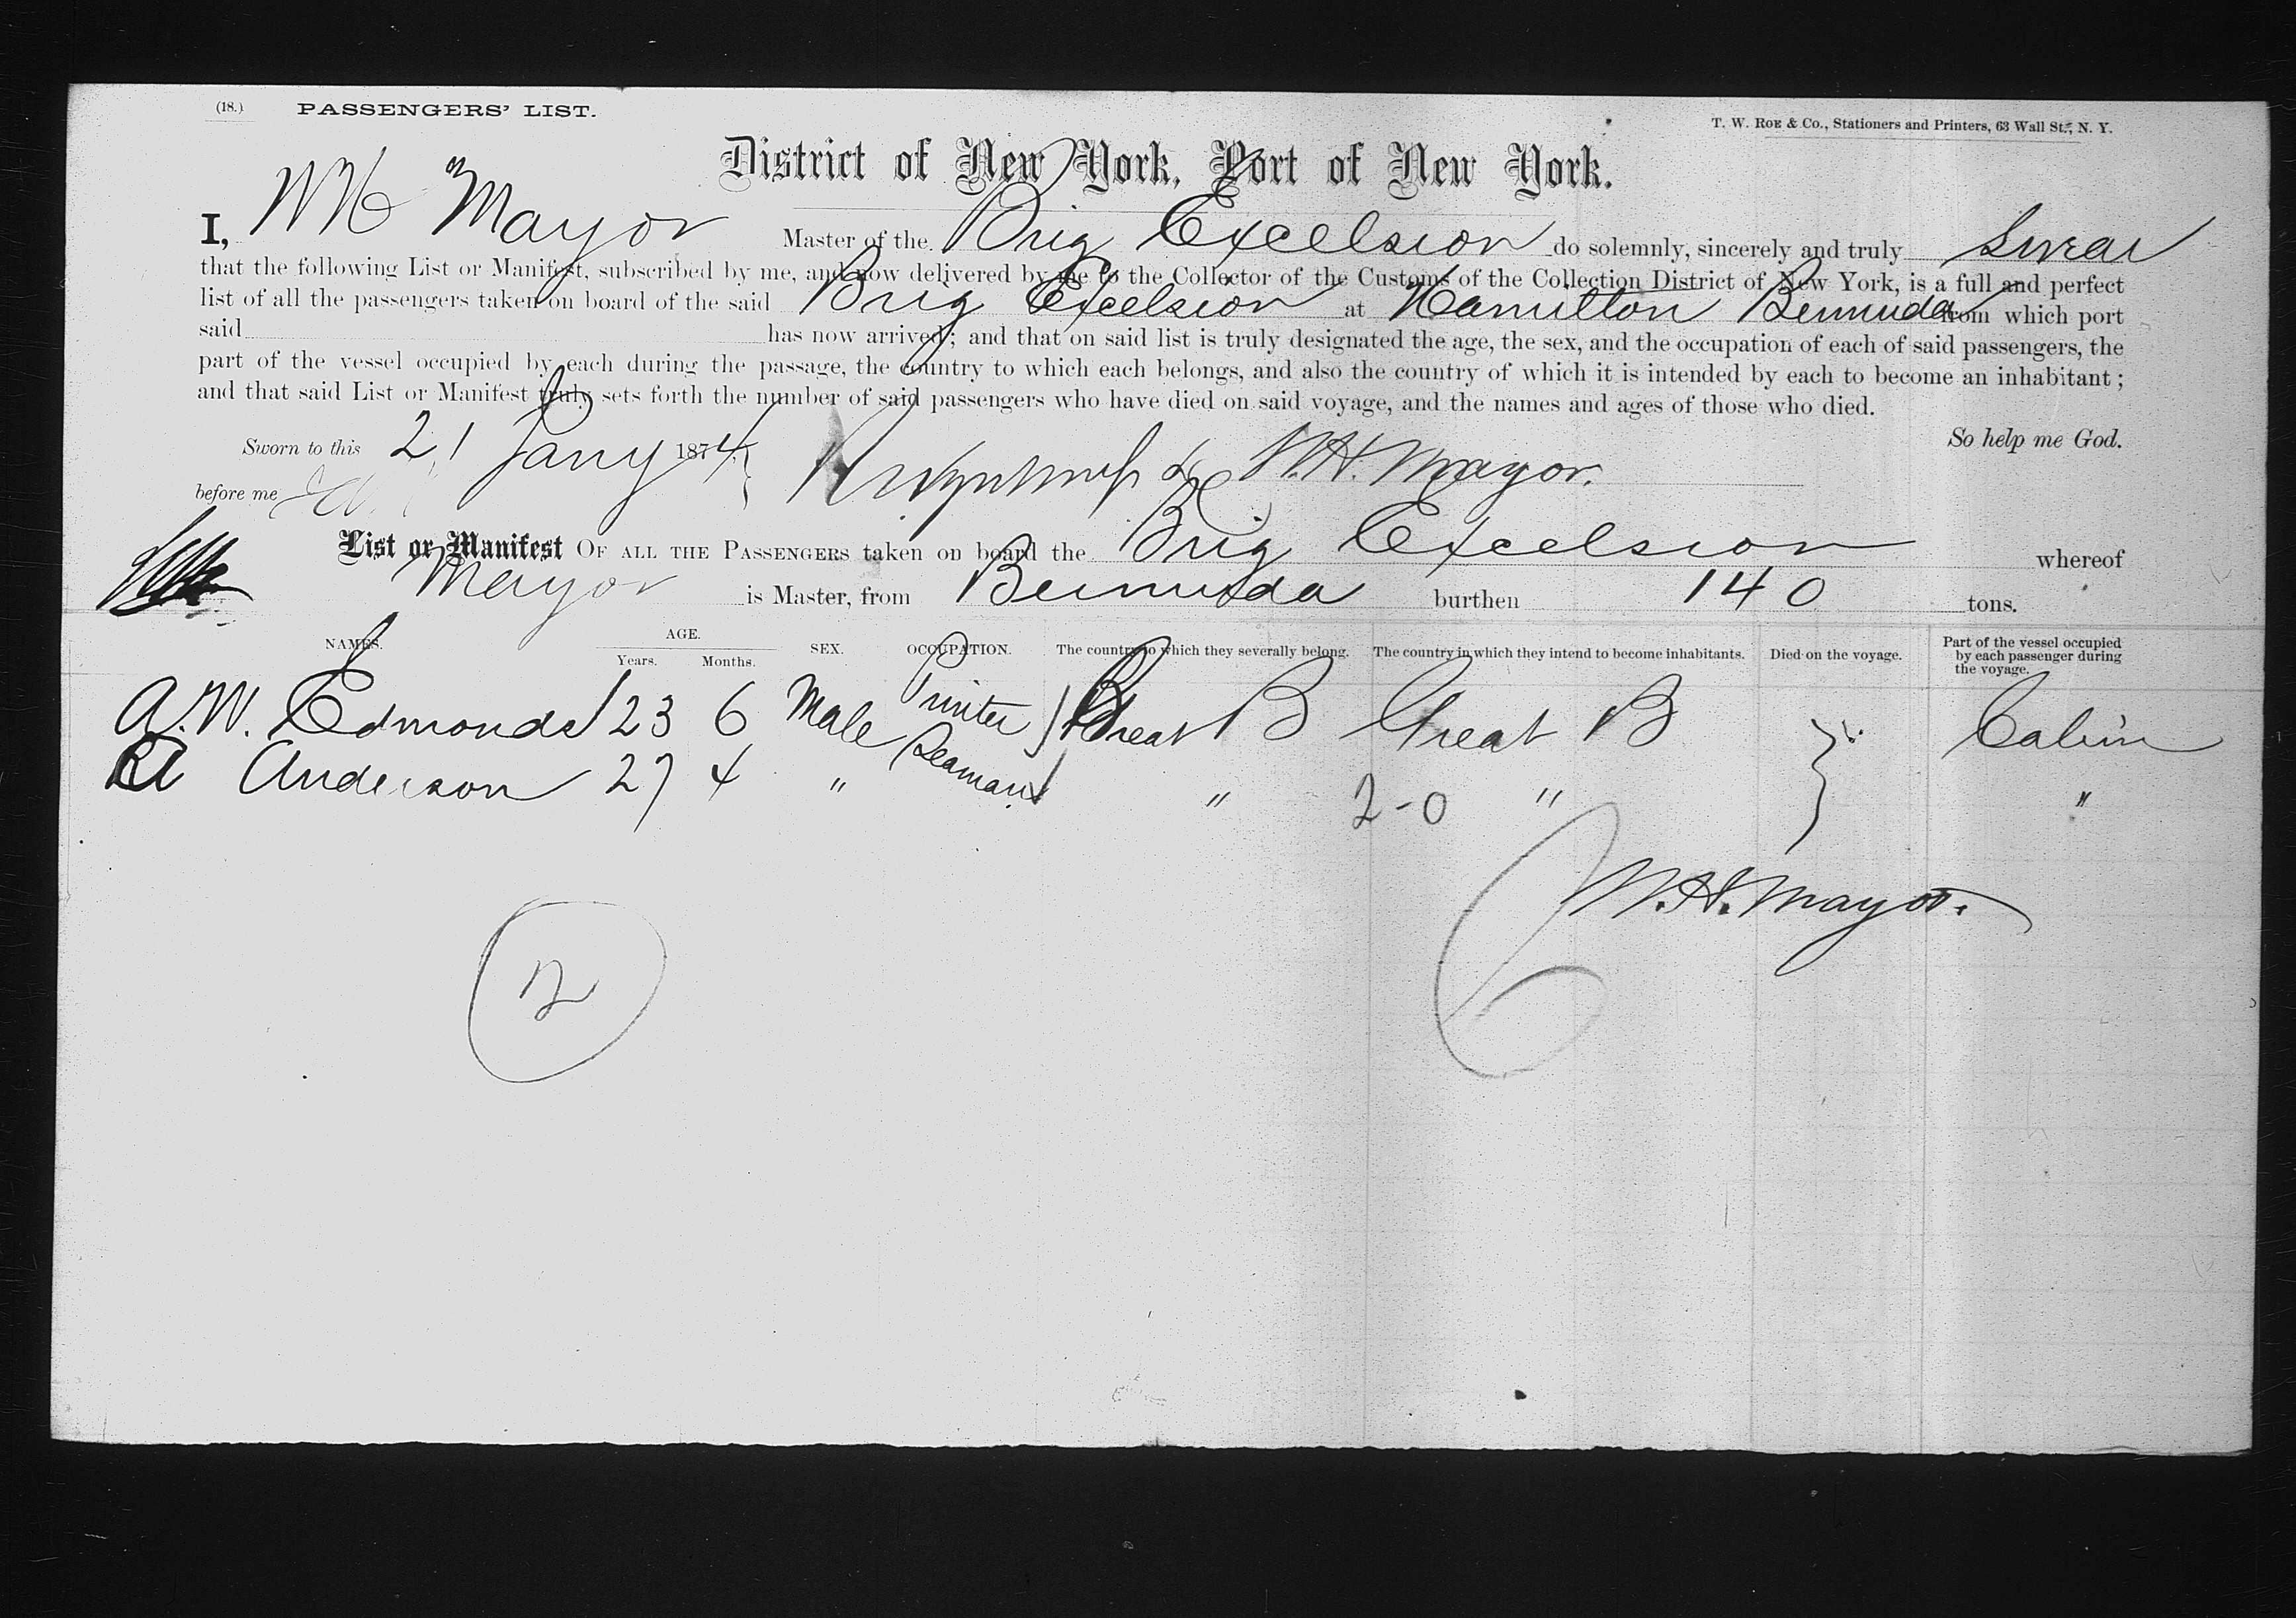 (18.) PASSENGERS' LIST.
T. W. Roe & Co., Stationers and Printers, 63 Wall St., N. Y.
District of New York, Port of New York.
I, WH Mayor Master of the Brig Excelsior do solemnly, sincerely and truly swear
that the following List or Manifest, subscribed by me, and now delivered by me to the Collector of the Customs of the Collection District of New York, is a full and perfect
list of all the passengers taken on board of the said Brig Excelsior at Hamilton Bermuda from which port
said has now arrived; and that on said list is truly designated the age, the sex, and the occupation of each of said passengers, the
part of the vessel occupied by each during the passage, the country to which each belongs, and also the country of which it is intended by each to become an inhabitant;
and that said List or Manifest truly sets forth the number of said passengers who have died on said voyage, and the names and ages of those who died.
So help me God.
Sworn to this 21 Jany 1874 W.H. Mayor.
before me
List or Manifest OF ALL THE PASSENGERS taken on board the Brig Excelsior whereof
Mayor is Master, from Bermuda burthen 140 tons.
NAMES. AGE. Years. Months. SEX. OCCUPATION. The country to which they severally belong. The country in which they intend to become inhabitants. Died on the voyage. Part of the vessel occupied by each passenger during the voyage.
A.W. Edmonds 23 6 Male Printer Great B Great B Cabin
Anderson 27 4 " Seaman " 2-0 " "
W.H. Mayor.
2